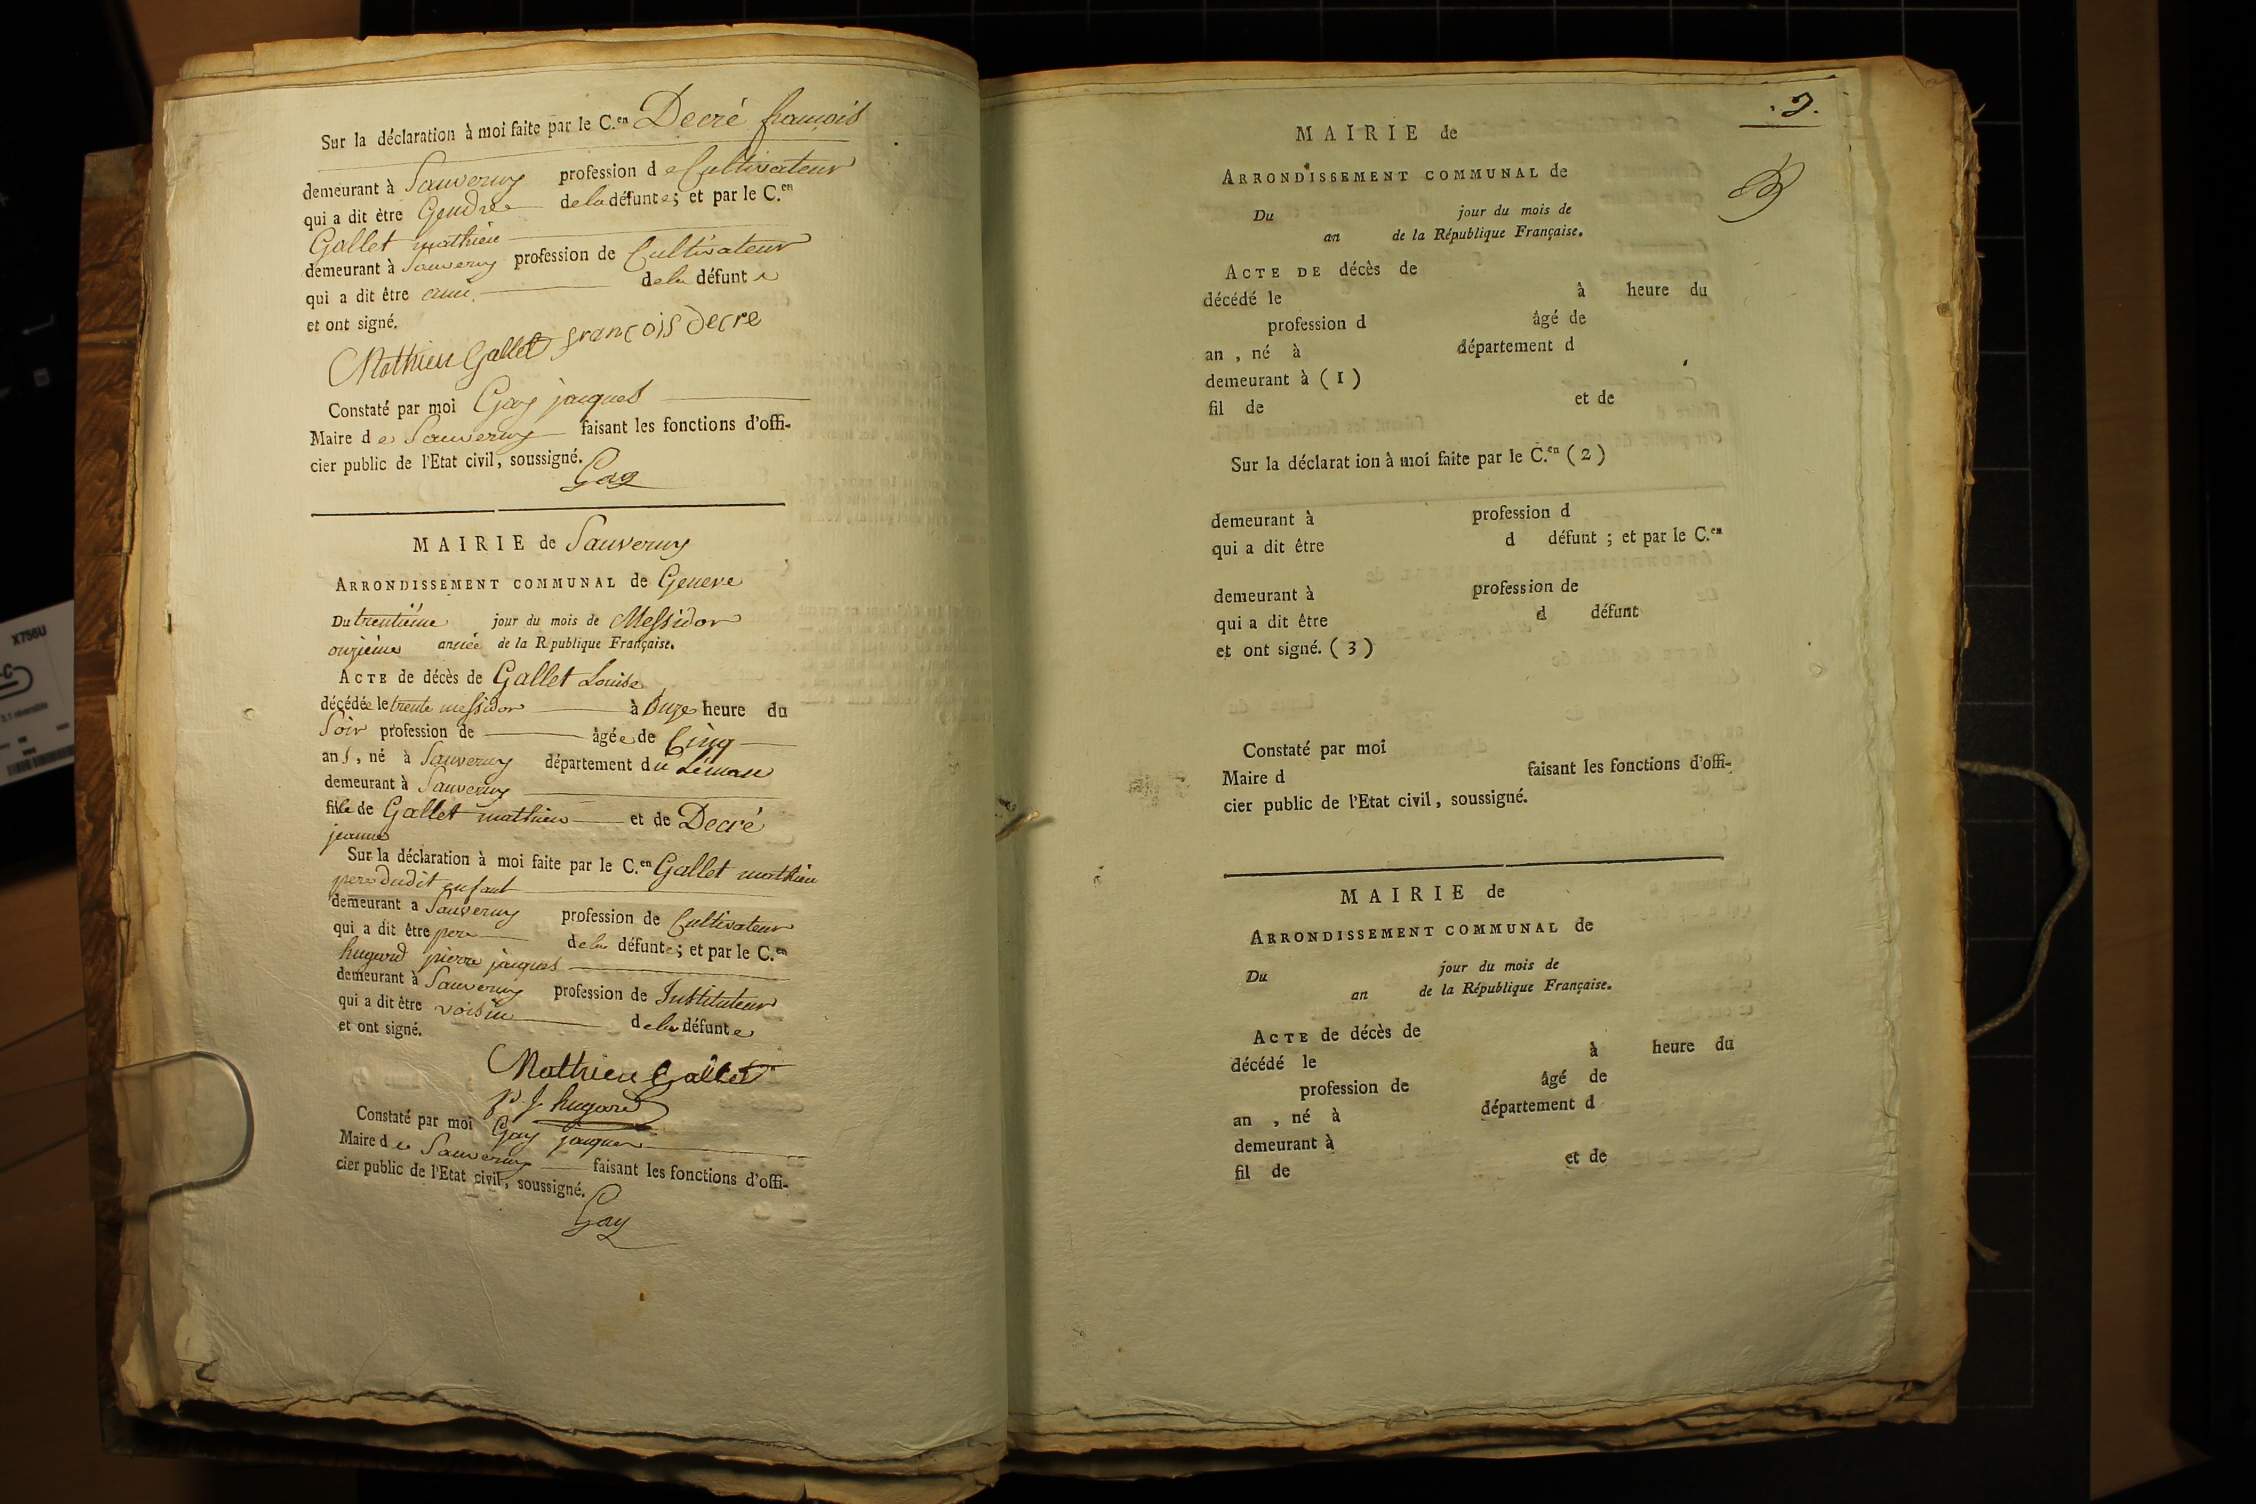 Sur la déclaration à moi faite par le C.en Decré françois
demeurant à Sauverny profession de Cultivateur
qui a dit être Gendre de la défunte; et par le C.en
Gallet mathieu
demeurant à Sauverny profession de Cultivateur
qui a dit être ami de la défunte
et ont signé.
Mathieu Gallet françois Decre
Constaté par moi Gay jacques
Maire de Sauverny faisant les fonctions d'offi-
cier public de l'Etat civil, soussigné.
Gay
MAIRIE de Sauverny
ARRONDISSEMENT COMMUNAL de Geneve
Du trentième jour du mois de Messidor
onzième année de la R publique Française.
ACTE de décès de Gallet Louise
décédée le trente messidor à Onze heure du
Soir profession de âgée de Cinq
ans, né à Sauverny département du Léman
demeurant à Sauverny
fille de Gallet mathieu et de Decré
jeanne
Sur la déclaration à moi faite par le C.en Gallet mathieu
pere dudit enfant
demeurant a Sauverny profession de Cultivateur
qui a dit être pere de la défunte; et par le C.en
hugard pierre jacques
demeurant à Sauverny profession de Instituteur
qui a dit être voisin de la défunte
et ont signé.
Mathieu Gallet
p. j. hugard
Constaté par moi Gay jacques
Maire de Sauverny faisant les fonctions d'offi-
cier public de l'Etat civil, soussigné.
Gay
MAIRIE de
ARRONDISSEMENT COMMUNAL de
Du jour du mois de
an de la République Française.
ACTE DE décès de
décédé le à heure du
profession d âgé de
an , né à département d
demeurant à (1)
fil de et de
Sur la déclarat ion à moi faite par le C.en (2)
demeurant à profession d
qui a dit être d défunt ; et par le C.en
demeurant à profession de
qui a dit être d défunt
et ont signé. (3)
Constaté par moi
Maire d faisant les fonctions d'offi-
cier public de l'Etat civil, soussigné.
MAIRIE de
ARRONDISSEMENT COMMUNAL de
Du jour du mois de
an de la République Française.
ACTE de décès de
décédé le à heure du
profession de âgé de
an , né à département d
demeurant à
fil de et de
X756U